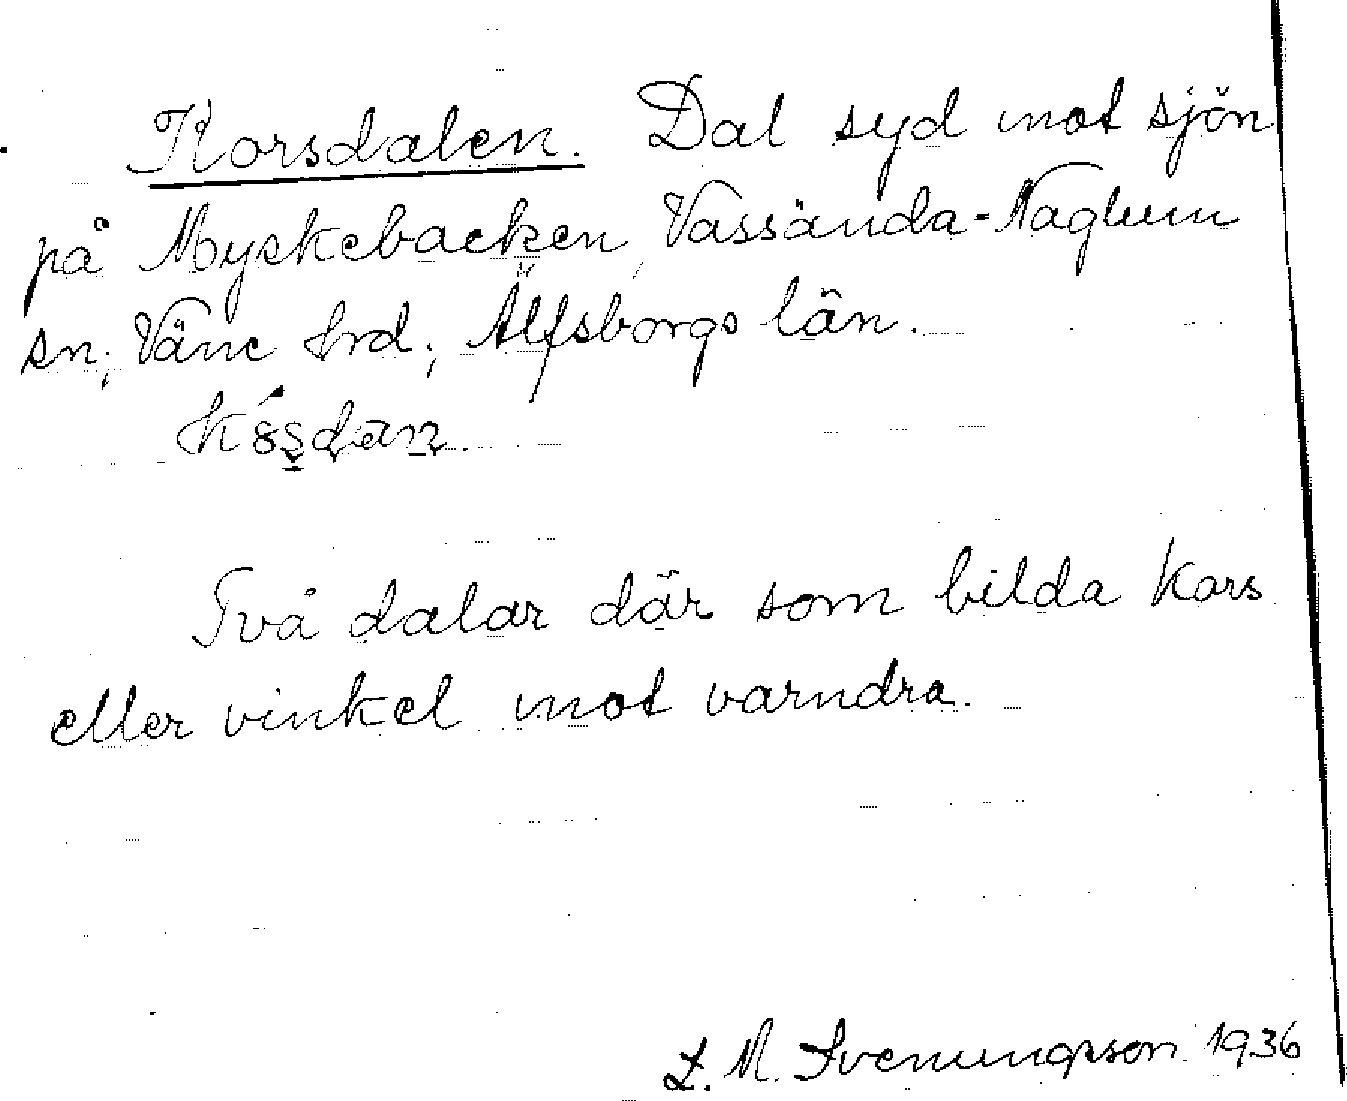 Korsdalen. Dal syd mot sjön
på Myskebacken, Vassända-Naglum
sn; Väne hrd; Älfsborgs län.
Två dalar där som bilda kors
eller vinkel mot varndra.
L. M. Svenungsson 1936